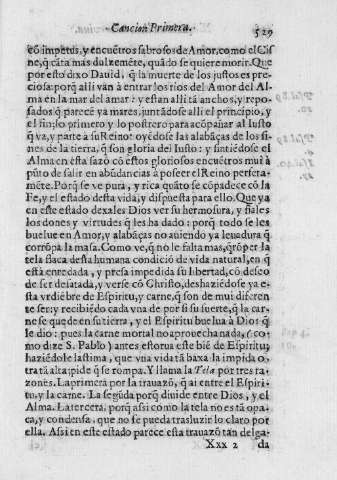 Cancion Primera. 529
cō impetus, y encuētros sabrosos de Amor, como el Cis
ne, q̄ cāta mas dulzemēte, quādo se quiere morir. Que
por esto dixo Dauid, q̄ la muerte de los justos es pre
ciosa: porq̄ alli vān à entrar los rios del Amor del Al
ma en la mar del amar: y estan alli tā anchos, y repo-
sados q̄ parecē ya mares, juntādose alli el principio, y
el fin; lo primero y lo postrero para acōpañar al Iusto
q̄ va, y parte à su Reino: oyēdose las alabāças de los fi-
nes de la tierra, q̄ son gloria del Iusto: y sintiēdose el
Alma en esta sazō cō estos gloriosos encuētros mui à
pūto de salir en abūdancias à poseer el Reino perfeta-
mēte. Porq̄ se ve pura, y rica quāto se cōpadece cō la
Fe, y el estado desta vida, y dispuesta para ello. Que ya
en este estado dexales Dios ver su hermosura, y fiales
los dones y virtudes q̄ les ha dado: porq̄ todo se les
buelue en Amor, y alabāças no auiendo ya leuadura q̄
corrōpa la masa. Como ve, q̄ no le falta mas, q̄ rōper la
tela flaca desta humana condiciō de vida natural, en q̄
està enredada, y presa impedida su libertad, cō deseo
de ser desatada, y verse cō Christo, deshaziēdose ya e-
sta vrdiēbre de Espiritu, y carne, q̄ son de mui diferen
te ser: y recibiēdo cada vna de por si su suerte, q̄ la car-
ne se quede en su tierra, y el Espiritu buelua à Dios q̄
le dio: pues la carne mortal no aprouecha nada, (co-
mo dize S. Pablo) antes estorua este biē de Espiritu;
haziēdole lastima, que vna vida tā baxa la impida o-
tra tā alta; pide q̄ se rompa. Y llama la Tela por tres ra-
zones. La primera por la trauazō, q̄ ai entre el Espiri-
tu, y la carne. La segūda porq̄ diuide entre Dios, y el
Alma. La tercera, porq̄ assi como la tela no es tā opa-
ca, y condensa, que no se pueda trasluzir lo claro por
ella. Assi en este estado parece esta trauazō tan delga-
Xxx 2 da